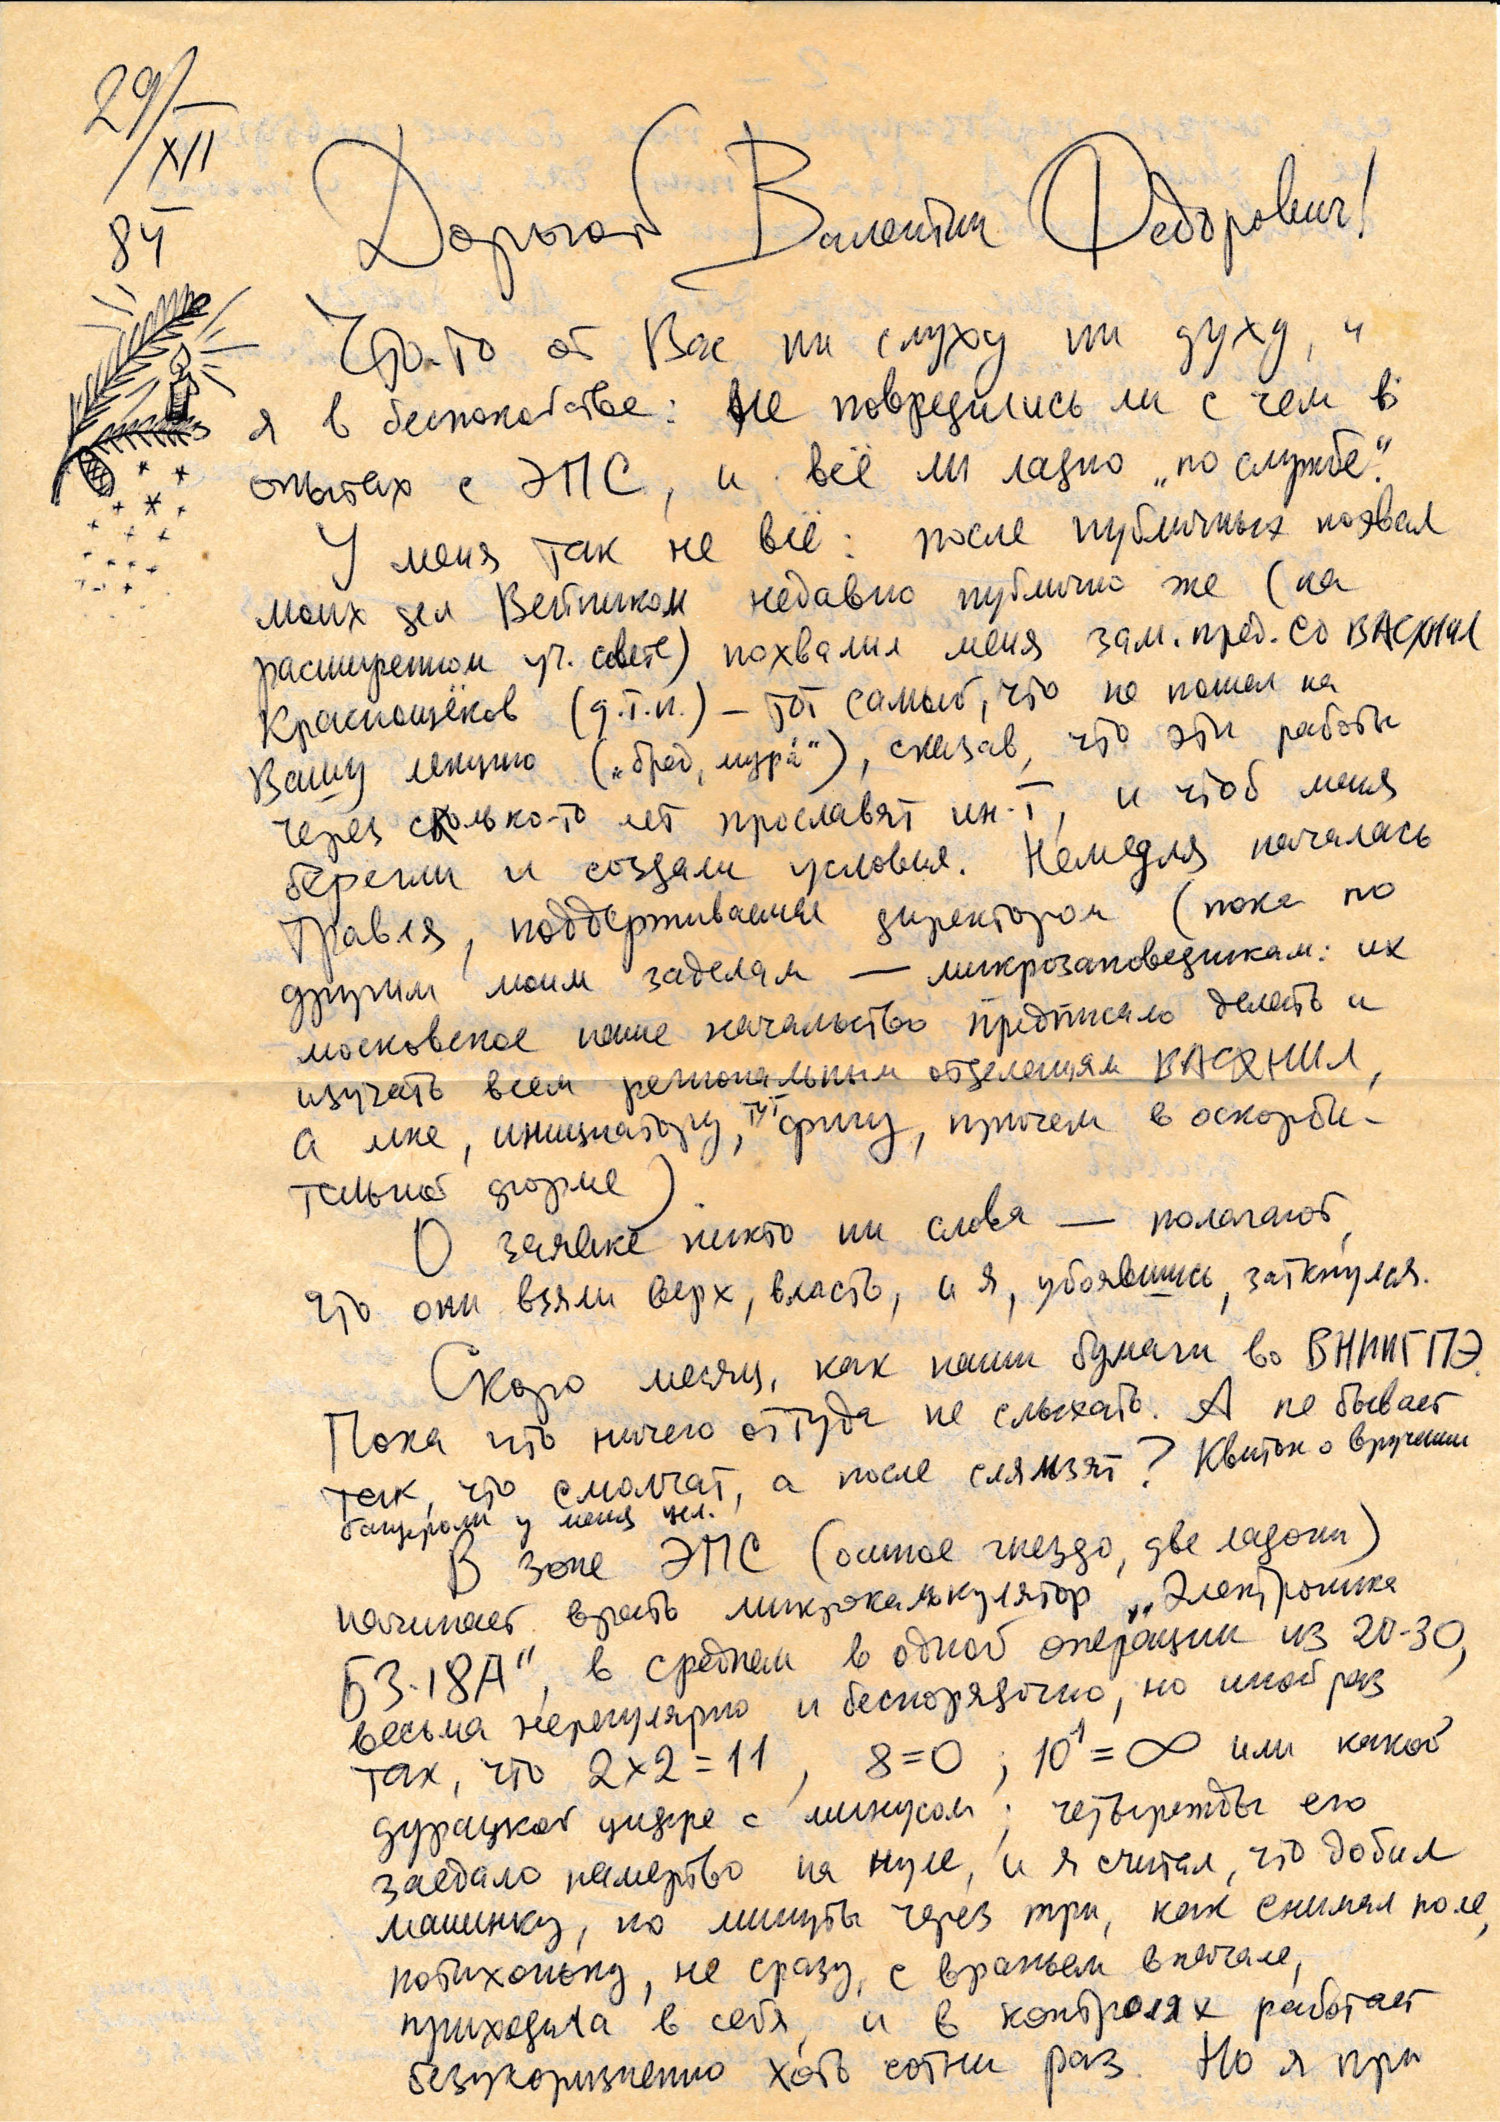 29/XII
84
Дорогой Валентин Федорович!
Что-то от Вас ни слуху ни духу, и
я в беспокойстве: не повредились ли с чем в
опытах с ЭПС, и всё ли ладно „по службе".
У меня так не всё: после публичных похвал
моих дел Вейником недавно публично же (на
расширенном уч. совете) похвалил меня зам. пред. СО ВАСХНИЛ
Краснощёков (д.т.н.) – тот самый, что не пошел на
Вашу лекцию („бред, мура́"), сказав, что эти работы
через сколько-то лет прославят ин-т, и чтоб меня
берегли и создали условия. Немедля началась
травля, поддерживаемая директором (пока по
другим моим заделам — микрозаповедникам: их
московское наше начальство предписало делать и
изучать всем региональным отделениям ВАСХНИЛ,
а мне, инициатору, тут фигу, причем в оскорби-
тельной форме).
О заявке никто ни слова — полагают,
что они взяли верх, власть, и я, убоявшись, заткнулся.
Скоро месяц, как наши бумаги во ВНИИГПЭ.
Пока что ничего оттуда не слыхать. А не бывает
так, что смолчат, а после слямзят? Квиток о вручении
бандероли у меня цел.
В зоне ЭПС (осиное гнездо, две ладони)
начинает врать микрокалькулятор „Электроника
Б3-18А", в среднем в одной операции из 20-30,
весьма нерегулярно и беспорядочно, но иной раз
так, что 2x2=11, 8=0; 10¹=∞ или какой
дурацкой цифре с минусом; четырежды его
заедало намертво на нуле, и я считал, что добил
машинку, но минуты через три, как снимал поле,
потихоньку, не сразу, с враньем вначале,
приходила в себя, и в контролях работает
безукоризненно хоть сотни раз. Но я при